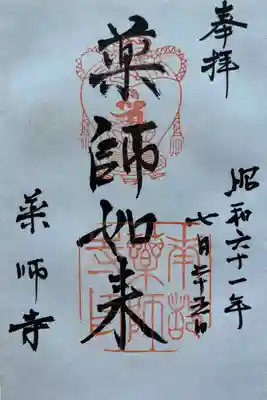 奉拝
昭和六十一年
七月二十五日
薬師如来
薬師寺